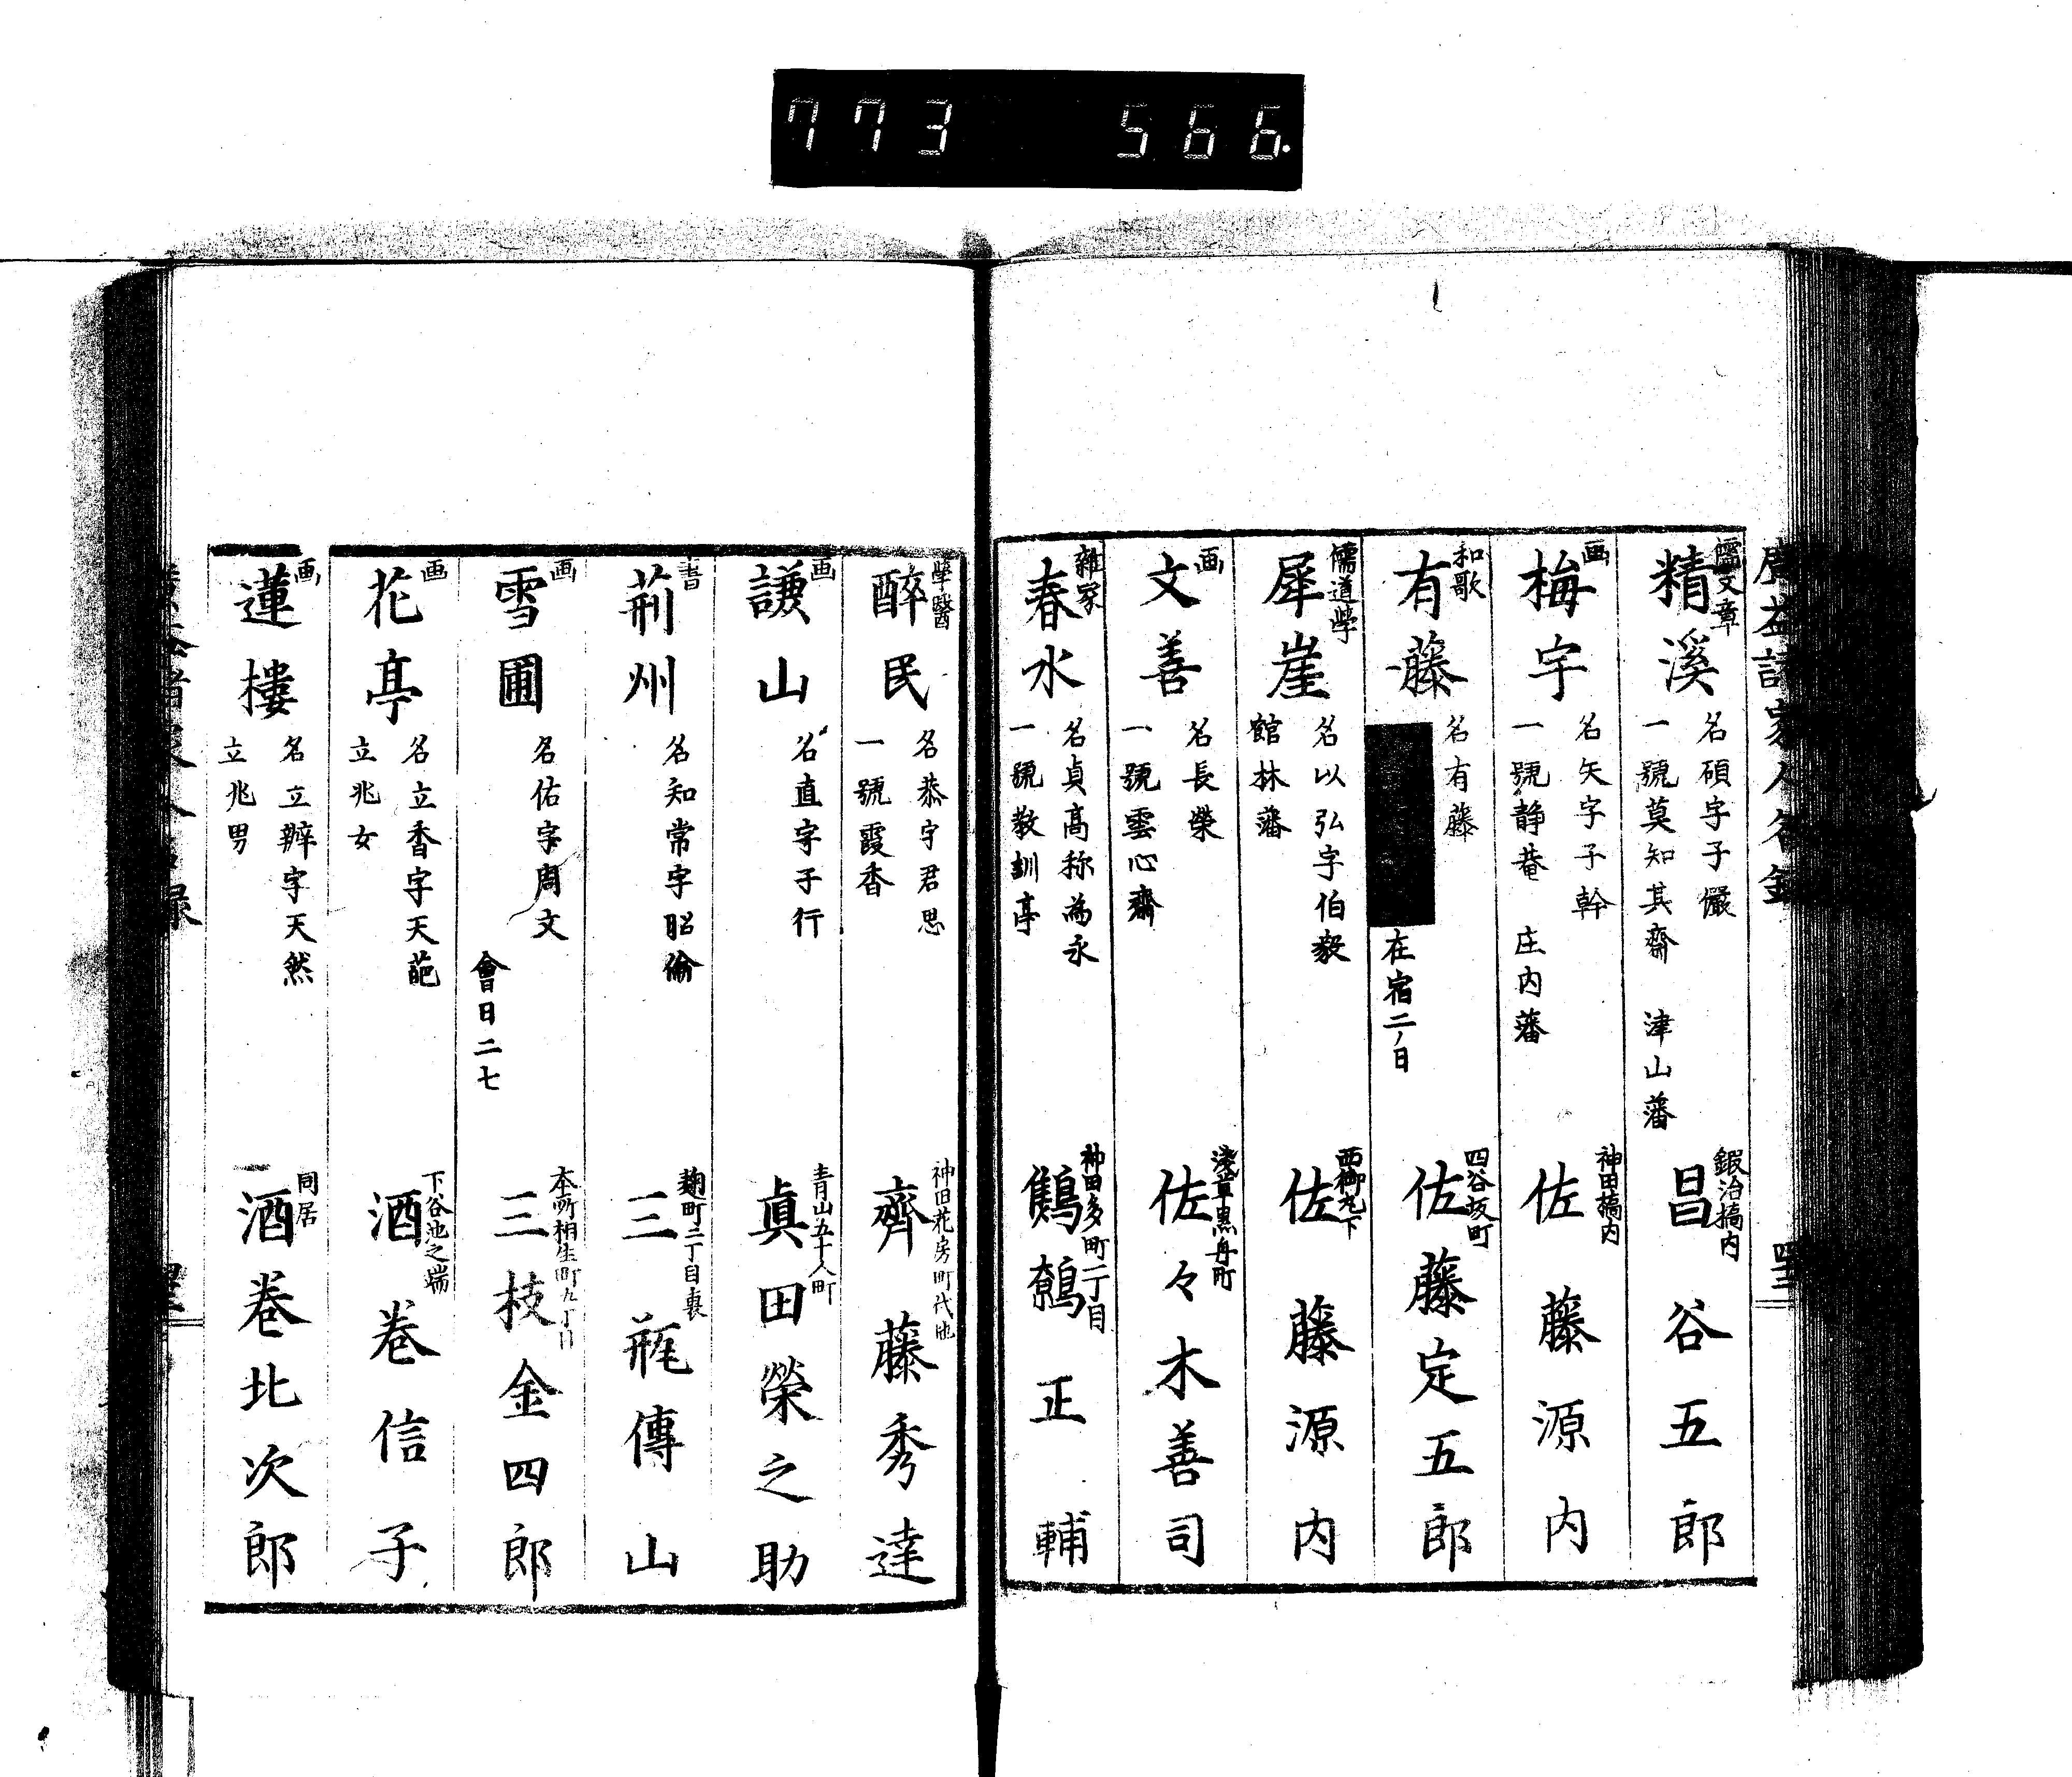 773 566.
廣益諸家人名録
儒文章
精溪
名碩字子儼
一號莫知其齋 津山藩
鍜冶橋内
昌谷五郎
画
梅宇
名矢字子幹
一號静菴 庄内藩
神田橋内
佐藤源内
和歌
有藤
名有藤
在宿二ノ日
四谷坂町
佐藤定五郎
儒道學
犀崖
名以弘字伯毅
館林藩
西御丸下
佐藤源内
画
文善
名長榮
一號雲心齋
淺草黒舟町
佐々木善司
雜家
春水
名貞高称為永
一號教訓亭
神田多町二丁目
鷦鷯正輔
學醫
醉民
名恭字君思
一號霞香
神田花房町代地
齊藤秀達
画
謙山
名直字子行
青山五十人町
眞田榮之助
書
荊州
名知常字昭倫
麹町三丁目裏
三瓶傳山
画
雪圃
名佑字周文
會日二七
本所相生町九丁目
三枝金四郎
画
花亭
名立香字天葩
立兆女
下谷池之端
酒巻信子
画
蓮樓
名立辦字天然
立兆男
同居
酒巻北次郎